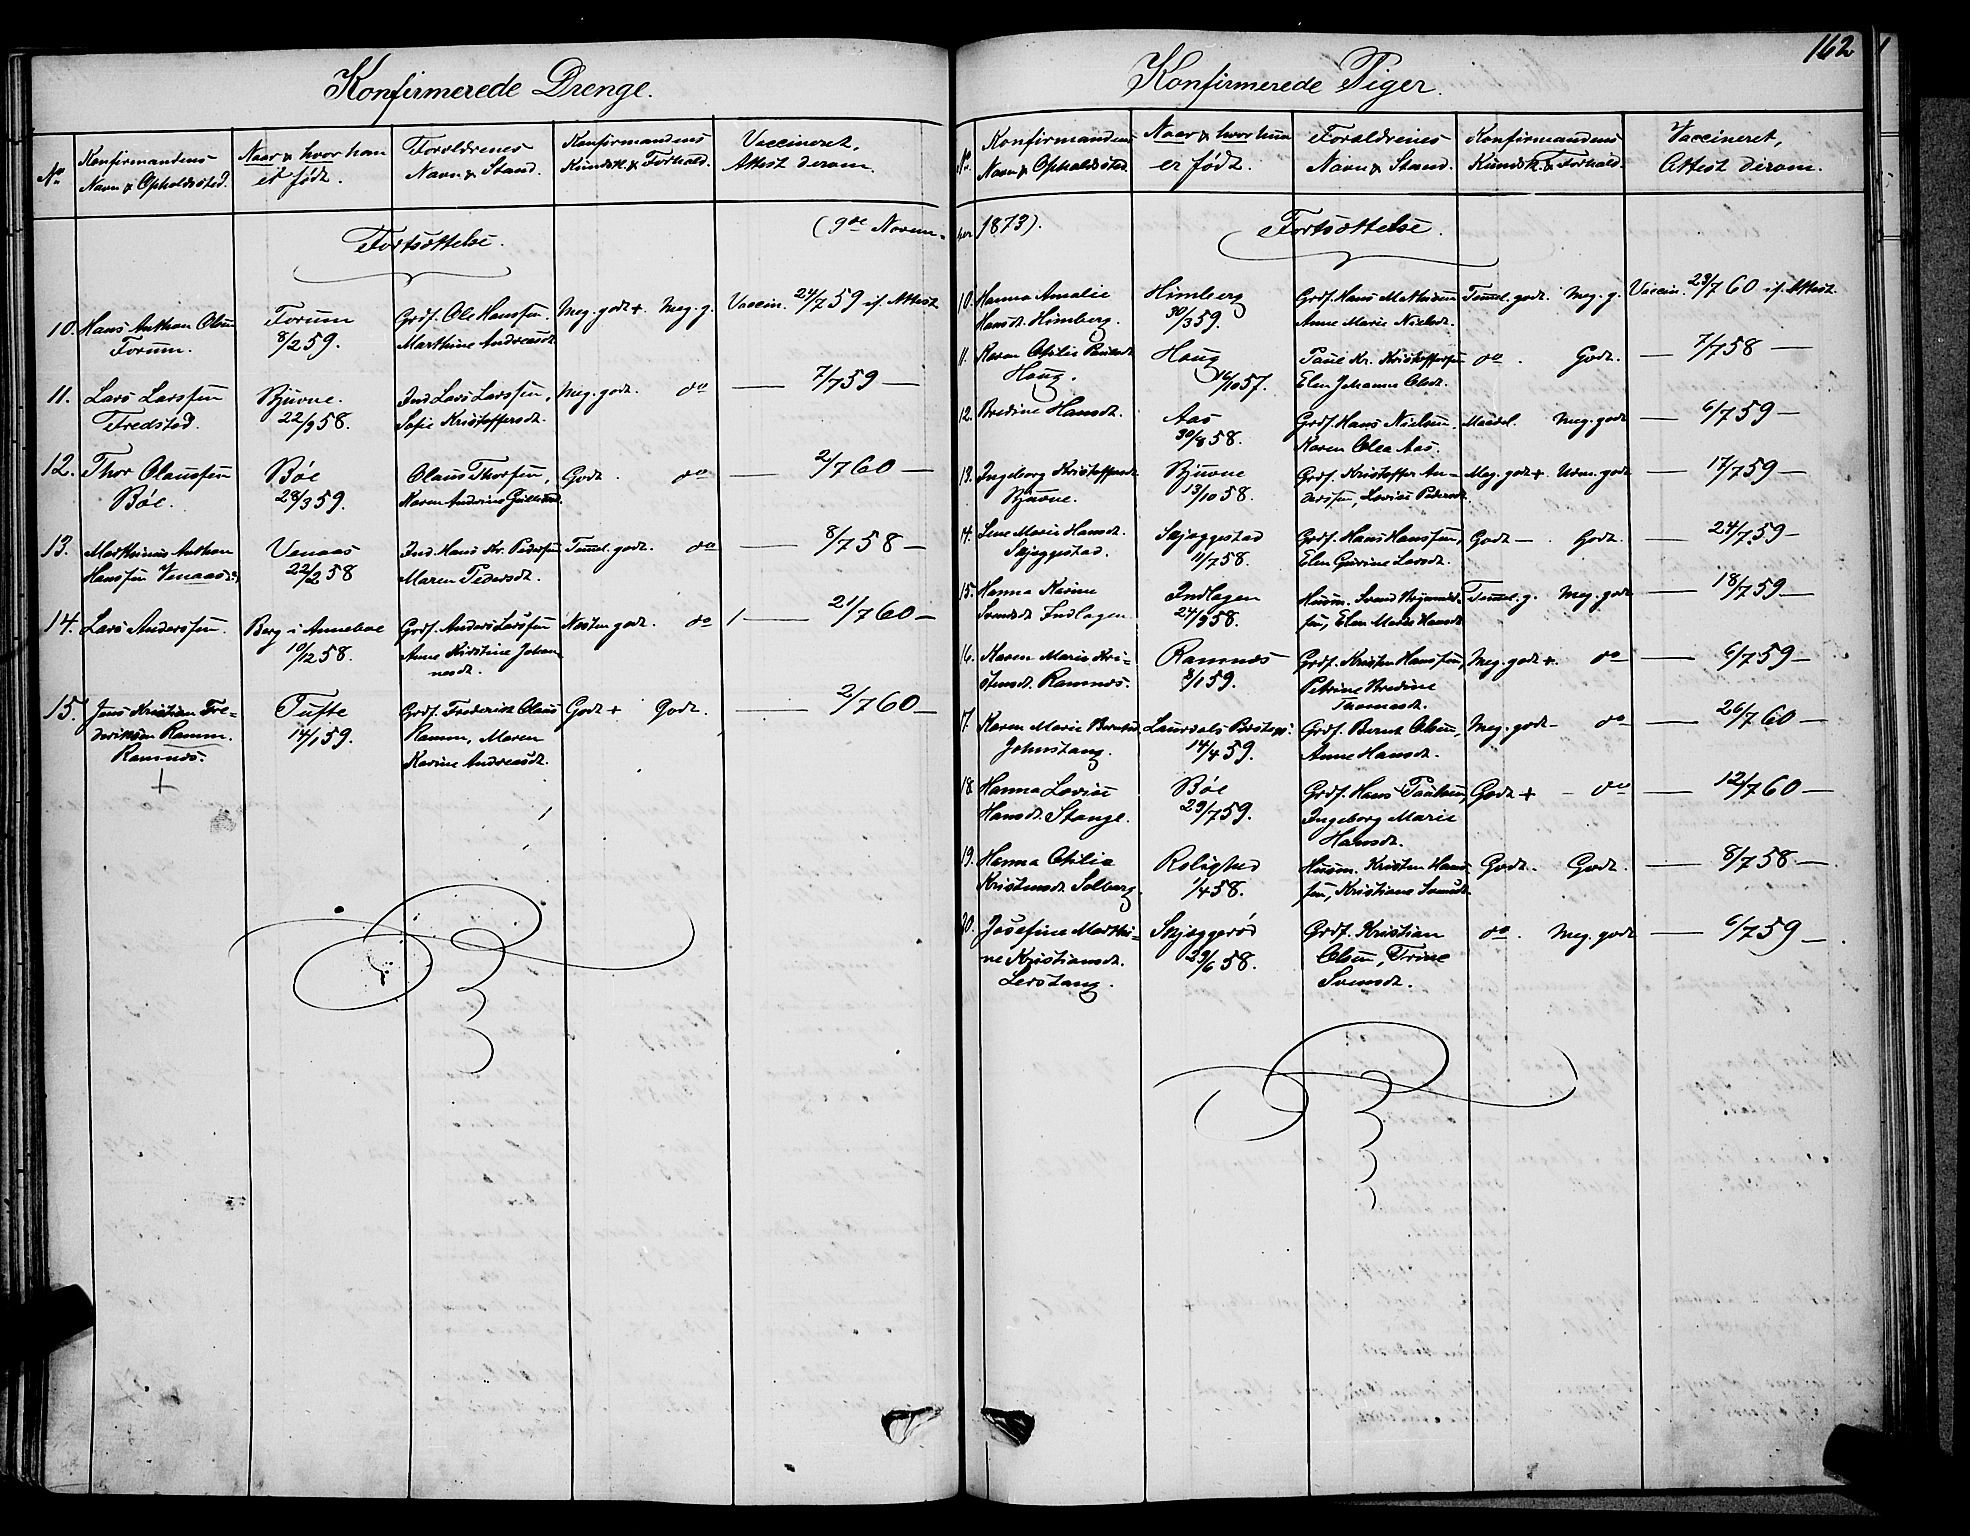 Konfirmerede Drenge.
No
Konfirmandens
Navn & Opholdssted.
Naar & hvor han
er født.
Forældrenes
Navn & Stand.
Konfirmandens
Kundsk. & Forhold.
Vaccineret,
Attest derom.
Fortsættelse.
(9de Novem-
10. Hans Anthon Olsen
Forum.
Forum
8/2 59.
Grdf. Ole Hanssen.
Marthine Andreasdt.
Meg. godt +
Meg. g.
Vaccin. 24/7 59 if. Attest
11. Lars Larssen
Fredstad.
Bjuvne.
22/9 58.
Ind. Lars Larssen,
Sofie Kristoffersdt.
Meg. godt.
do
— 7/7 59 —
12. Thor Olaussen
Bøe.
Bøe
28/3 59.
Olaus Thorsen,
Karen Andrine
Godt.
do
— 2/7 60 —
13. Marthinius Anthon
Hanssen Venaas
Venaas
22/2 58
Ind. Hans Kr. Pedersen
Maren Pedersdt.
Temmel. godt.
do
— 8/7 58 —
14. Lars Anderssen.
Berg i Anneboe
10/12 58.
Grdf. Anders Larssen
Anne Kirstine Johan
nesdt.
Næsten godt.
do
— 21/7 60 —
15. Jens Kristian Fre-
deriksen Ramm.
Ramnæs.
+
Tufte
14/1 59.
Grdf. Frederik Olaus
Ramm, Maren
Karine Andreasdt.
Godt +
Godt.
— 2/7 60 —
162
Konfirmerede Piger.
No
Konfirmandens
Navn & Opholdssted.
Naar & hvor hun
er født.
Forældrenes
Navn & Stand.
Konfirmandens
Kundsk. & Forhold.
Vaccineret,
Attest derom.
ber 1873).
Fortsættelse.
10. Hanna Amalie
Hansdt. Himberg.
Himberg
30/3 59.
Grdf. Hans Mathisen
Anne Marie Nielsdt.
Temmel. godt.
Meg. g.
Vaccin. 23/7 60 if. Attest.
11. Karen Otilie Paulsdt
Haug.
Haug
16/10 57.
Paul Kr. Kristoffersen
Elen Johanne Olsdt.
do.
Godt.
— 7/7 58 —
12. Bredine Hansdt.
Aas
30/8 58.
Grdf. Hans Nielsen
Karen Olea Aas.
Maadel.
Meg. godt
— 6/7 59 —
13. Ingeborg Kristoffersdt
Bjuvne.
Bjuvne
13/10 58.
Grdf. Kristoffer An-
derssen, Lovise Pedersdt
Meg. godt +
Udm. godt
— 17/7 59 —
14. Lene Marie Hansdt.
Skjeggestad.
Skjeggestad
11/7 58.
Grdf. Hans Hanssen,
Elen Gurine Larsdt.
Godt —
Godt.
— 24/7 59 —
15. Hanna Karine
Svensdt Indlagen
Indlagen
24/9 58.
Husm. Svend
sen, Elen Marie Hansdt
Temmel. g.
Meg. godt
— 18/7 59 —
16. Karen Marie Kri-
stensdt. Ramnæs.
Ramnæs
2/1 59.
Grdf. Kristen Hanssen,
Petrine Bredine
Thomasdt.
Meg. godt +.
do
— 6/7 59 —
17. Karen Marie Berntsd.
Johnstang.
Laurdals Præstegj:
14/4 59.
Grdf. Bernt Olsen,
Anne Hansdt.
Meg. godt —
do
— 26/7 60 —
18. Hanna Lovise
Hansdt. Stange.
Bøe
29/7 59.
Grdf. Hans Paulsen,
Ingeborg Marie
Hansdt.
Godt +
do
— 12/7 60 —
19. Hanna Otilia
Kristensdt Solberg.
Rolighed
1/4 58.
Husm. Kristen Hans
sen, Kristiane Svensdt
Godt.
Godt.
— 8/7 58 —
20. Josefine Marthi-
ne Kristiansdt.
Lerstang.
Skjeggerød
29/6 58.
Grdf. Kristian
Olsen, Trine
Svensdt.
do.
Meg. godt
— 6/7 59 —